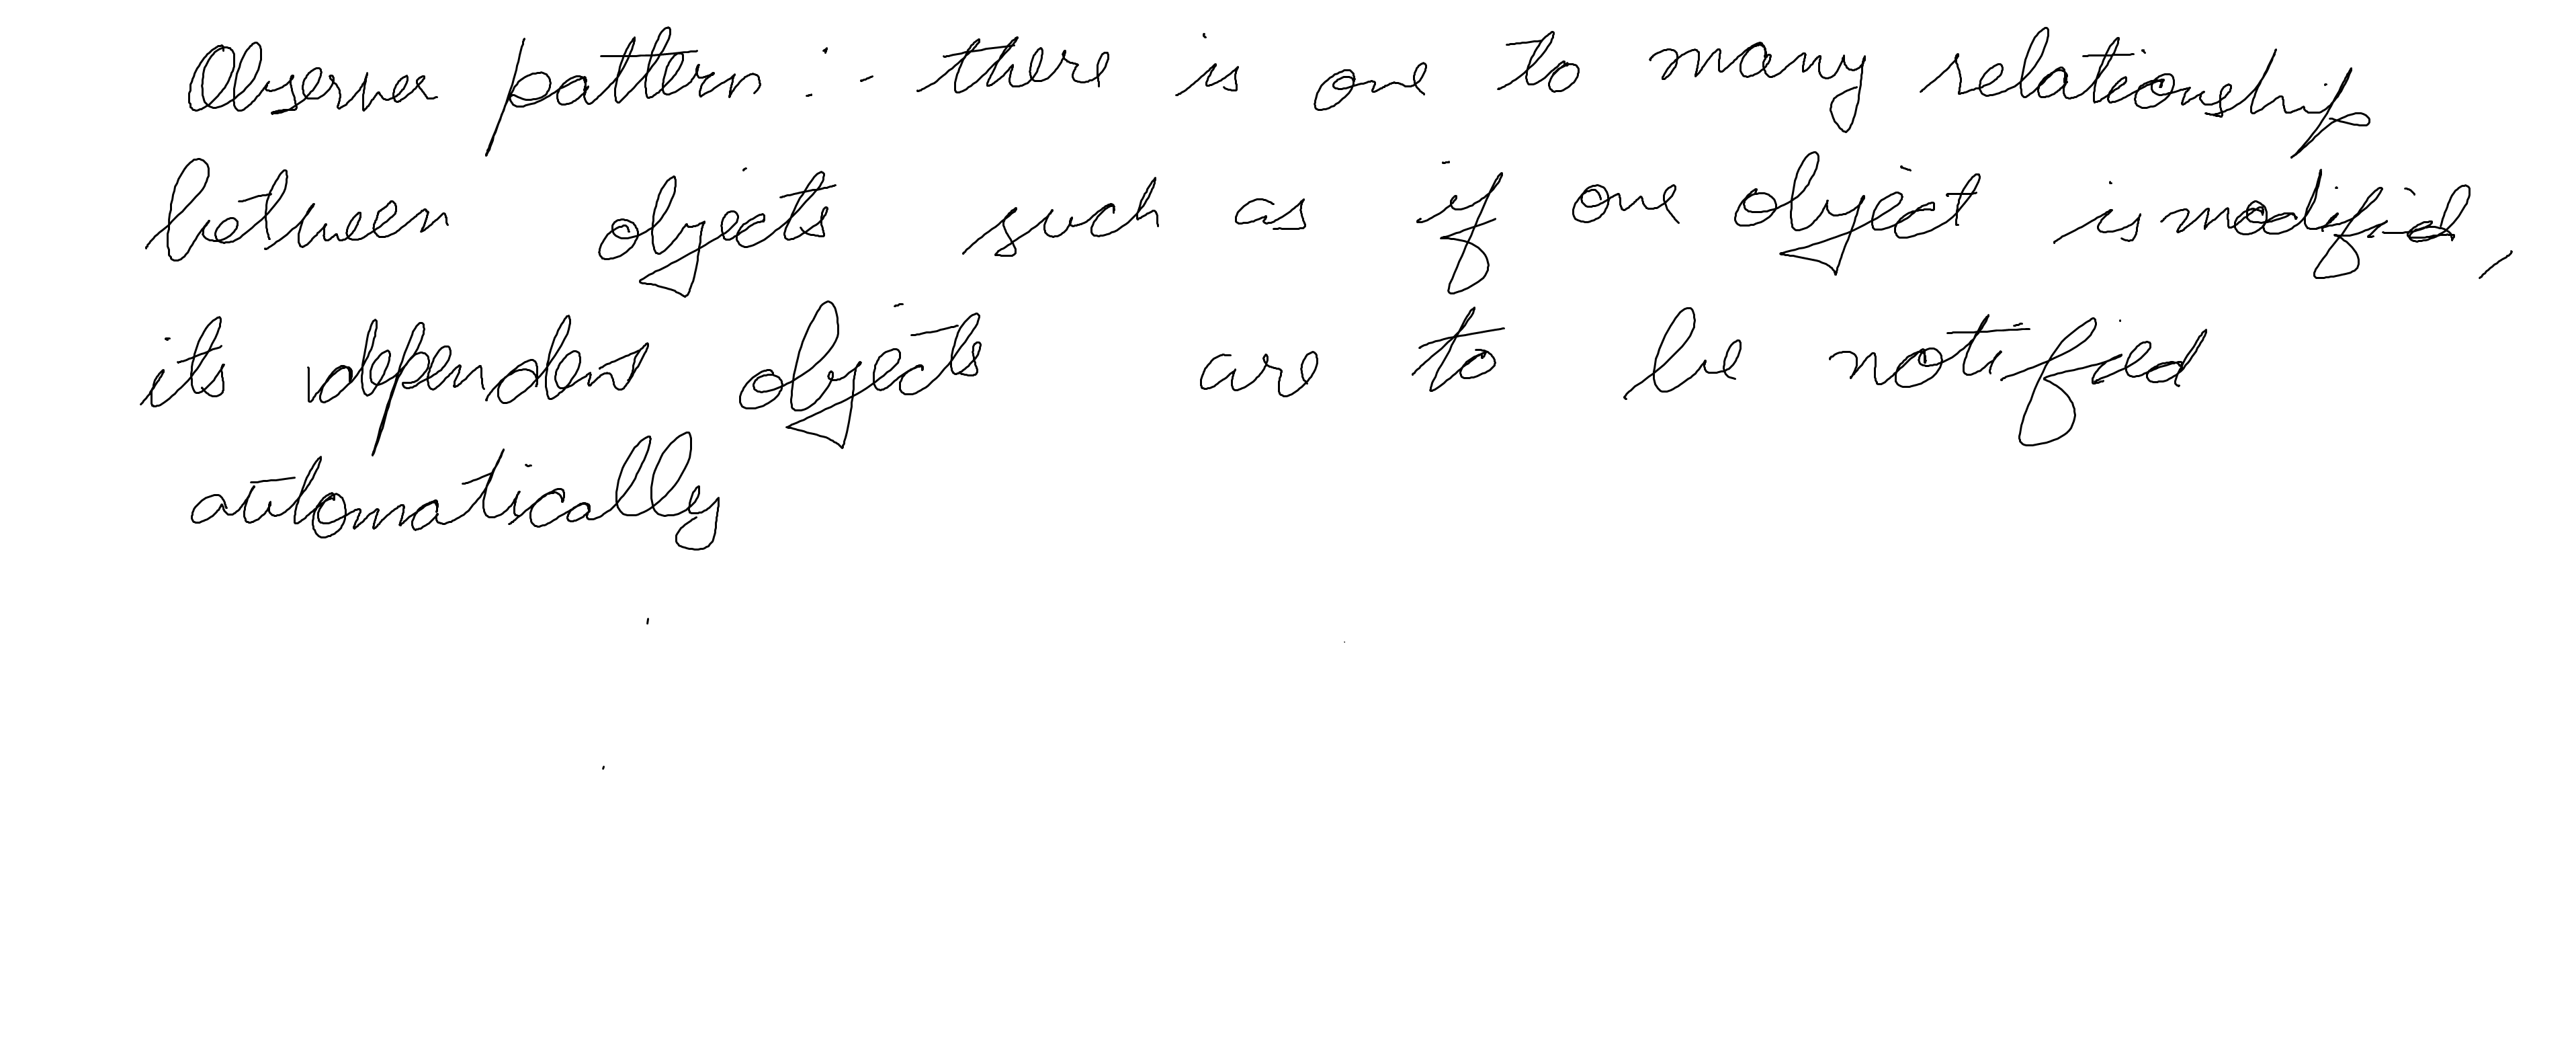 Observer pattern :- there is one to many relationship
between objects such as if one object is modified,
its dependent objects are to be notified
automatically